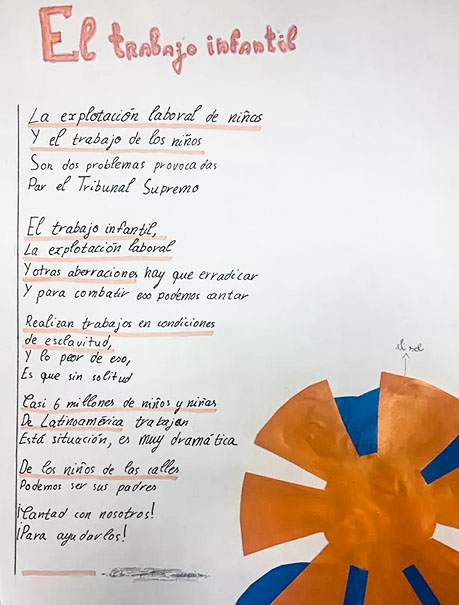 El trabajo infantil
La explotación laboral de niñas
Y el trabajo de los niños
Son dos problemas provocadas
Por el Tribunal Supremo
El trabajo infantil,
La explotación laboral
Y otras aberraciones hay que erradicar
Y para combatir eso podemos cantar
Realizan trabajos en condiciones
de esclavitud,
Y lo peor de eso,
Es que sin solitud
Casi 6 millones de niños y niñas
De Latinoamérica trabajan
Está situación, es muy dramática
De los niños de las calles
Podemos ser sus padres
¡Cantad con nosotros!
¡Para ayudarlos!
el sol